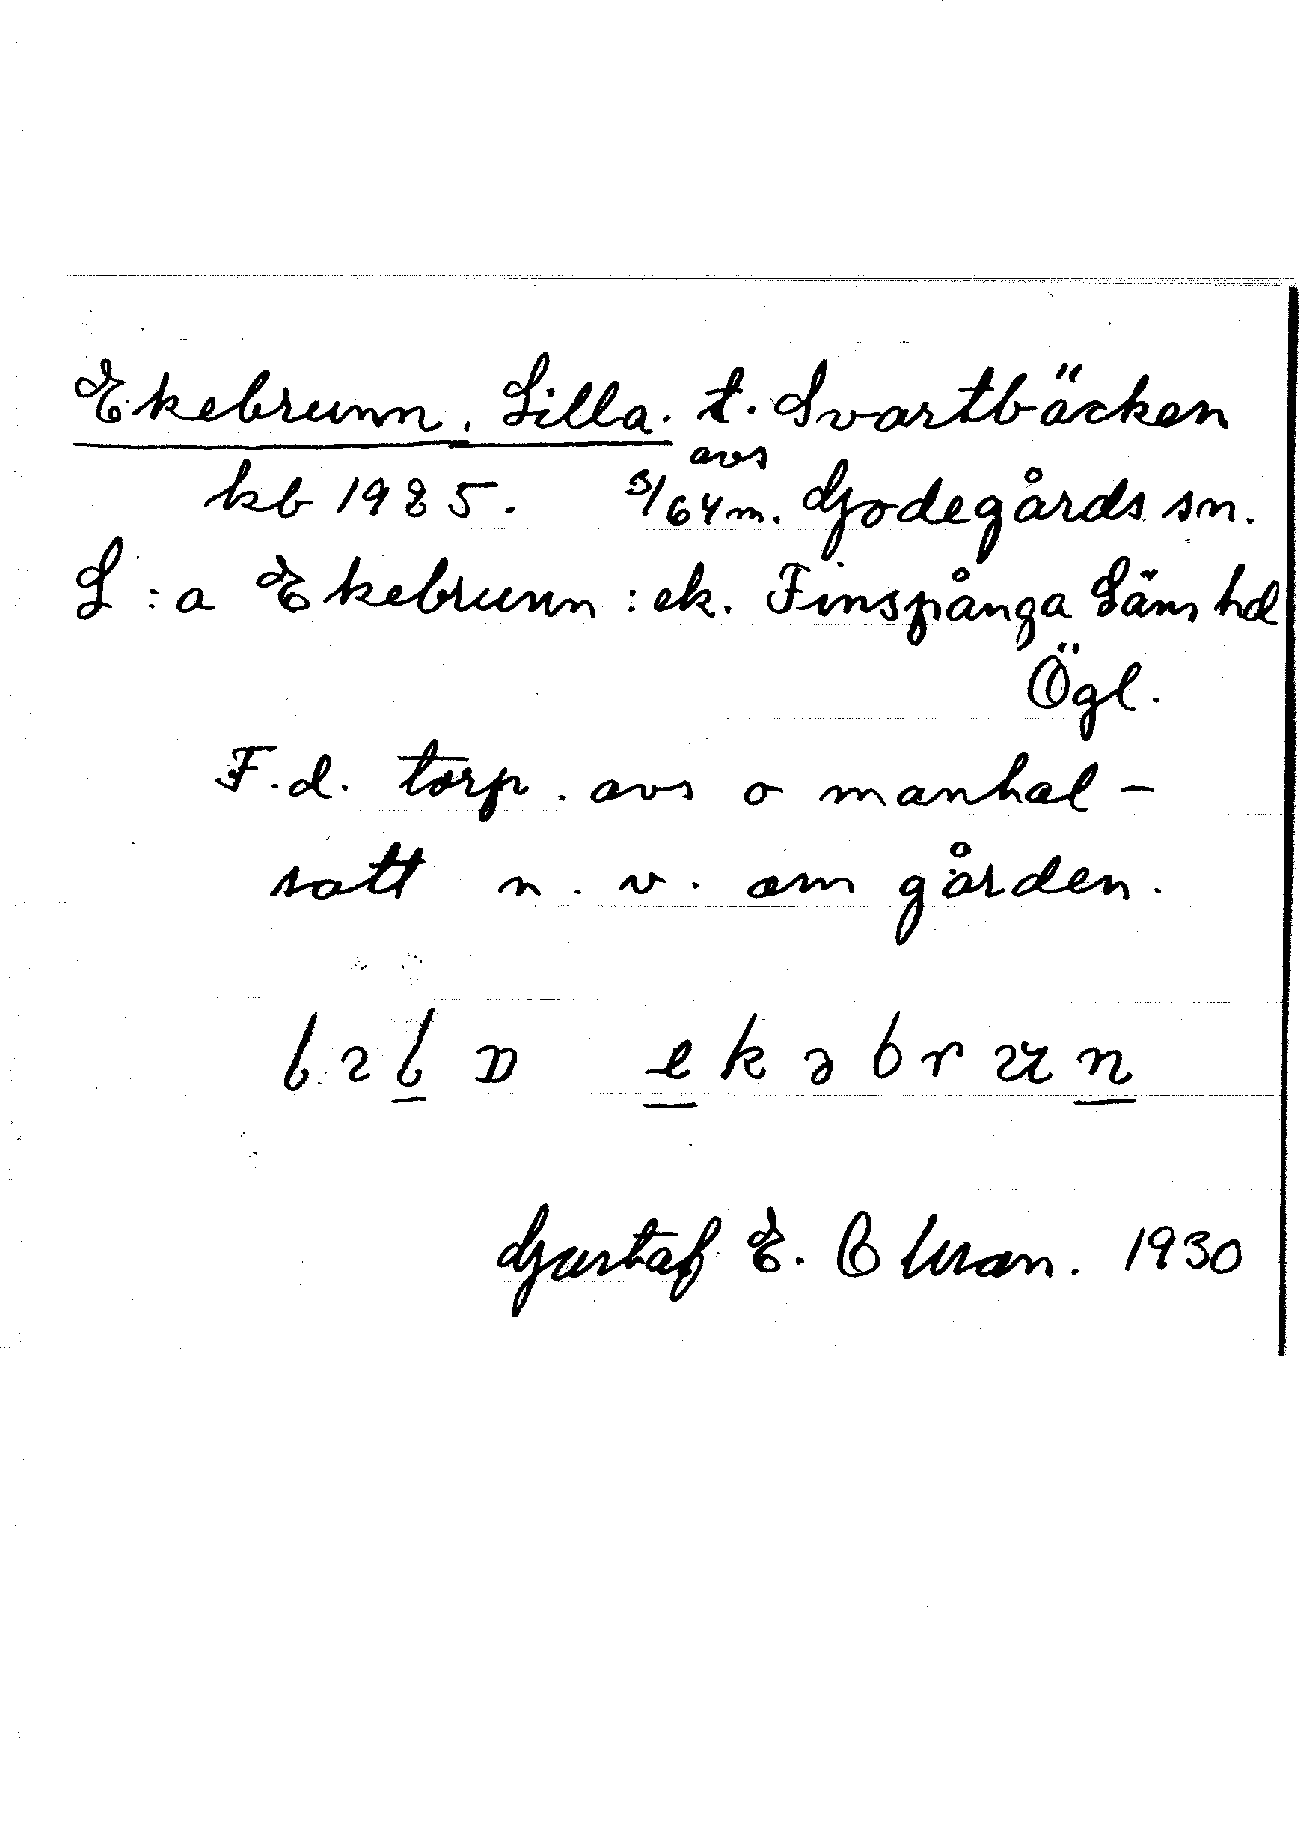 Ekebrunn, Lilla. t. Svartbäcken
avs
kb 1925. 3/64 m. Godegårds sn.
L:a Ekebrunn : ek. Finspånga Läns hd
Ögl.
F.d. torp. avs o manhal-
satt n. v. om gården.
ekəbrun
Gustaf E. Olsson. 1930